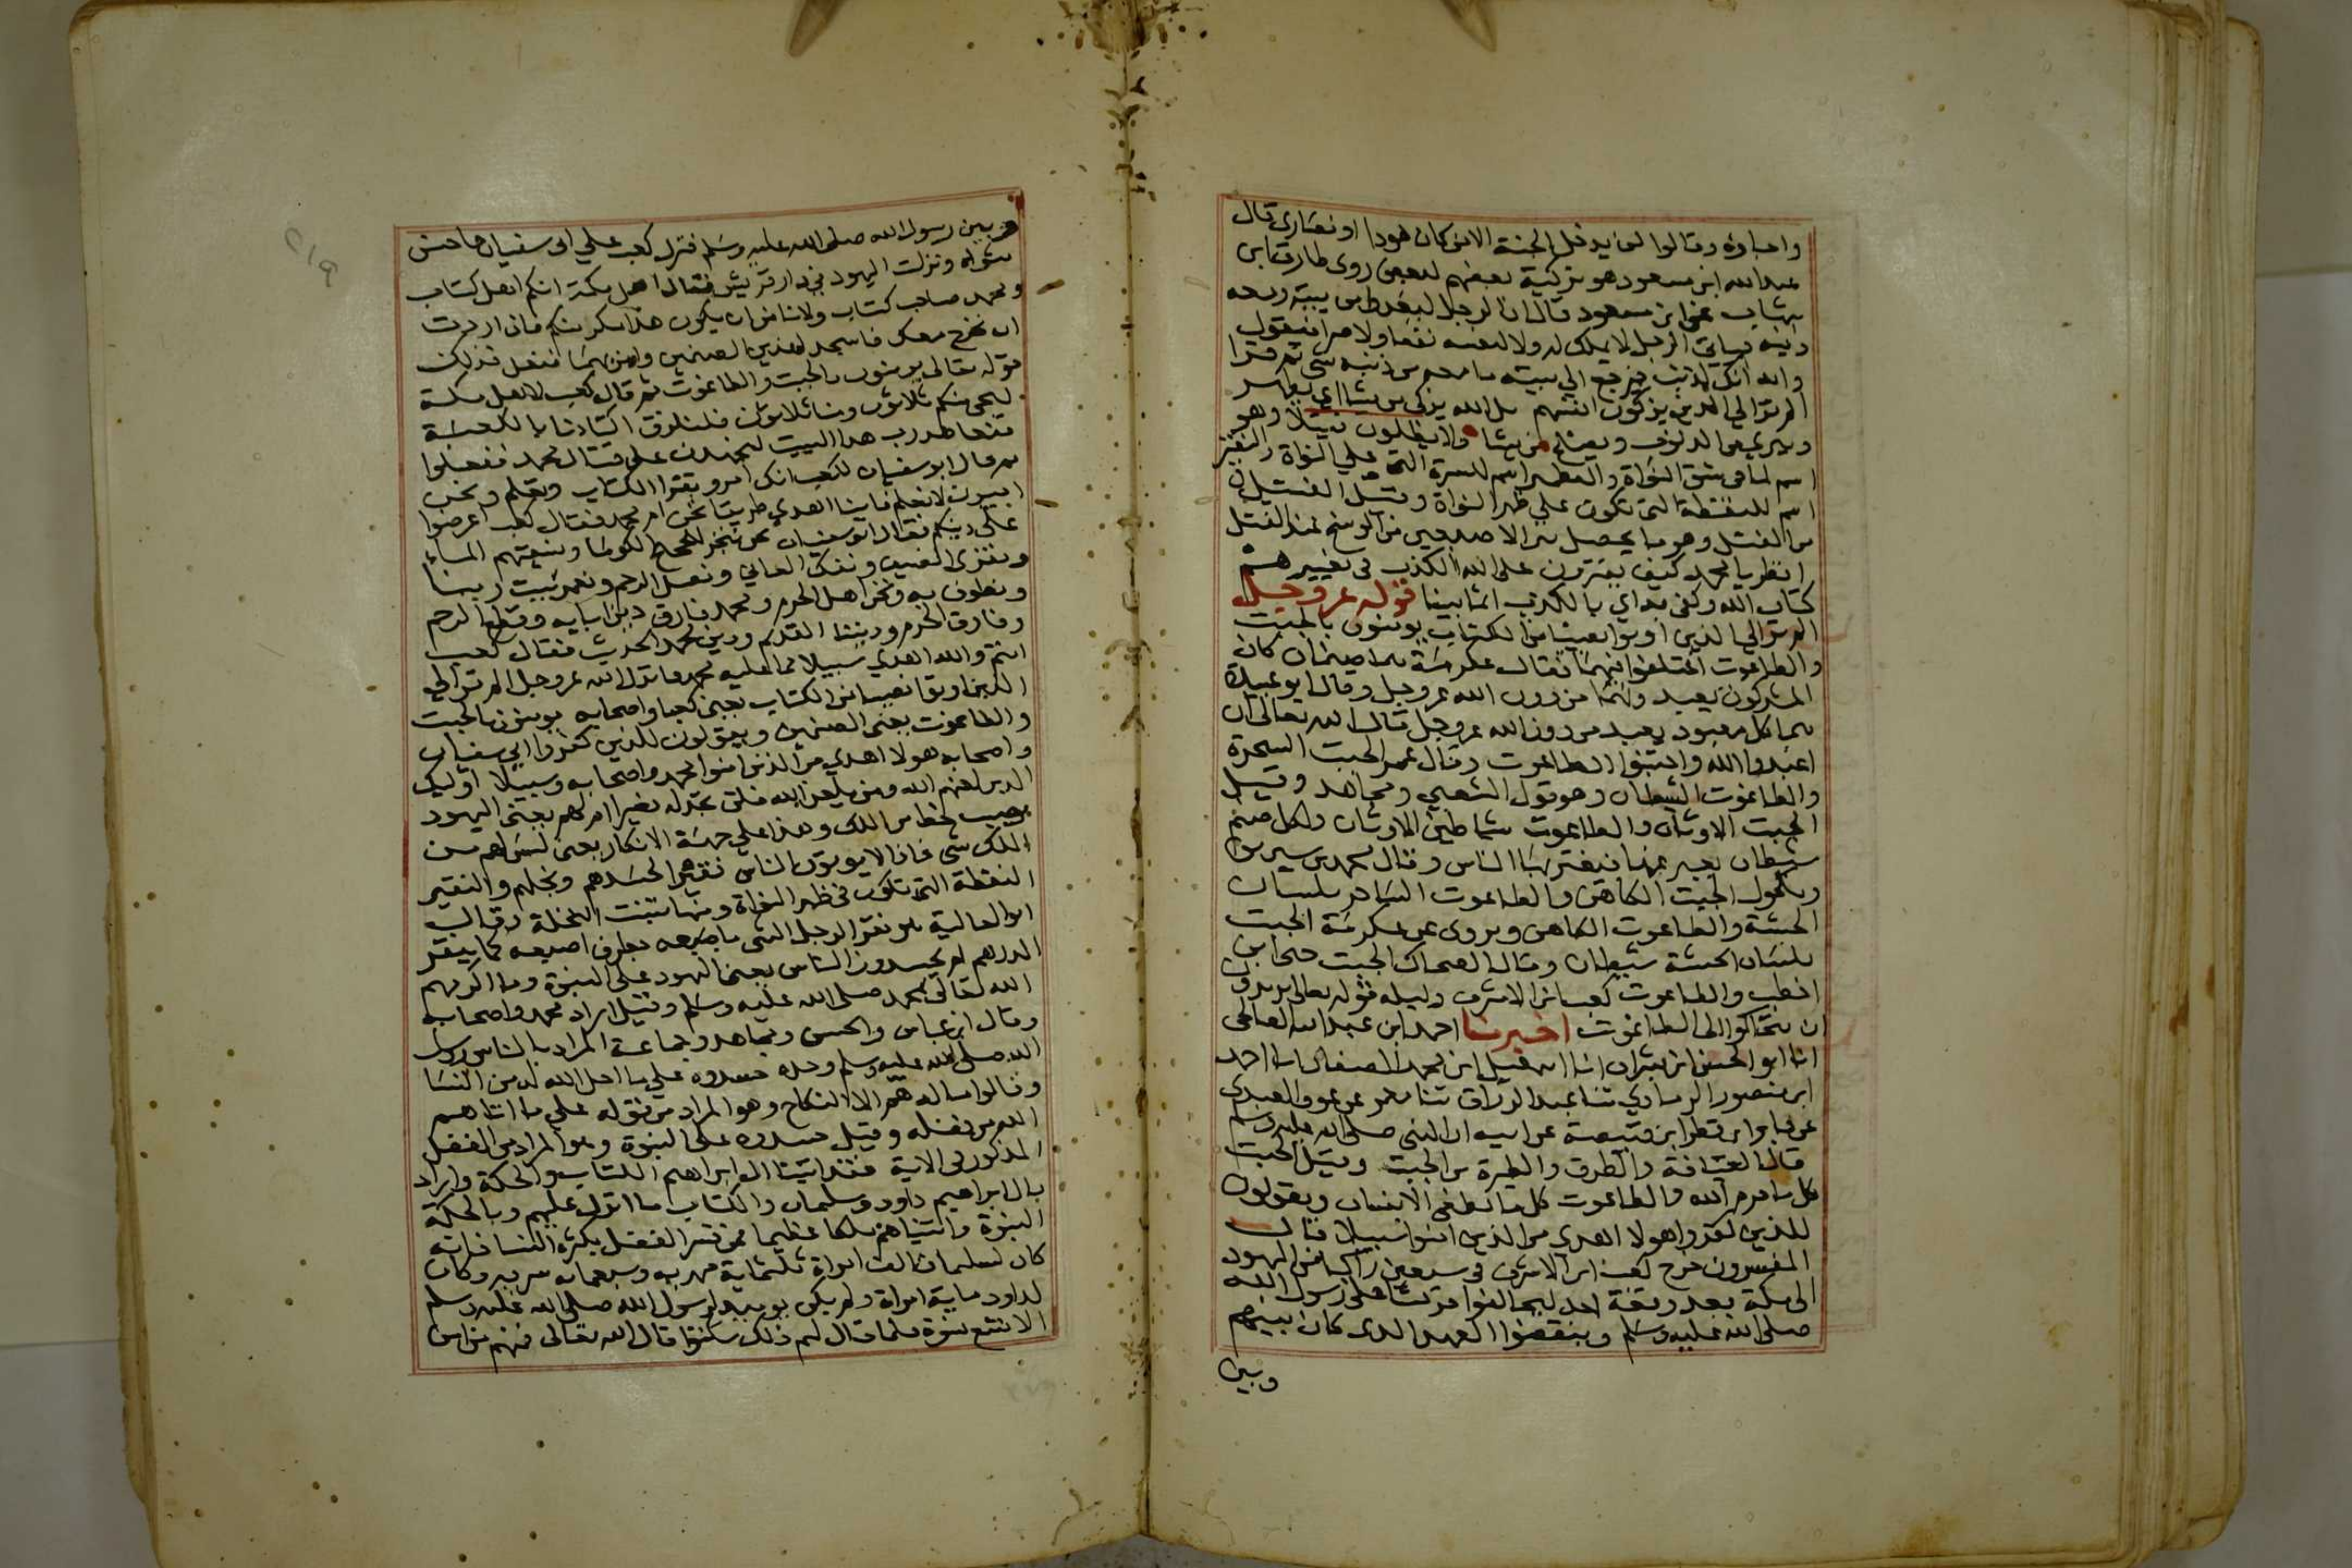 واحباؤه وقالوا لن يدخل الجنة الا من كان هودا او نصارى قال
عبد الله ابن مسعود هو تزكية بعضهم لبعض روى طارق ابن
شهاب عن ابن مسعود قال ان الرجل ليغدوا من بيته ومعه
دينه فياتي الرجل لا يملك له ولا لنفسه نفعا ولا ضرا فيقول
والله انك لذيت فيرجع الي بيته ما معه من دينه شي ثم قرا
الم تر الي الدين يزكون انفسهم بل الله يزكي من يشا اي يطهر
ويبري من الدنوب ويصلح من يشا ولا يظلمون فتيلا وهو
اسم لما في شق النواة والقطمير اسم للسرة التي علي النواة والنقير
اسم للنقطة التي تكون علي ظهر النواة وقيل الفتيل ان
من الفتل وهو ما يحصل بين الاصبعين من الوسخ عند الفتل
انظر يا محمد كيف يفترون على الله الكذب في تغييرهم
كتاب الله وكفى به اي بالكذب اثما مبينا قوله عز وجل
الم تر الي الذين اوتوا نصيبا من الكتاب يومنون بالجبت
والطاغوت اختلفوا فيهما فقال عكرمة هما صنمان كان
المشركون يعبدونهما من دون الله عز وجل وقال ابو عبيدة
هما كل معبود يعبد من دون الله عز وجل قال الله تعالى ان
اعبدوا الله واجتنبوا الطاغوت وقال عمر الجبت السحرة
والطاغوت الشيطان وهو قول الشعبي ومجاهد وقيل
الجبت الاوثان والطاغوت شياطين الاوثان ولكل صنم
شيطان يعبر عنها فيغتر بها الناس وقال محمد بن سيرين
ومكحول الجبت الكاهن والطاغوت الساحر بلسان
الحبشة والطاغوت الكاهن ويروى عن عكرمة الجبت
بلسان الحبشة شيطان وقال الضحاك الجبت حي ابن
اخطب والطاغوت كعب ابن الاشرف دليله قوله تعالى يريدون
ان يتحاكموا الى الطاغوت اخبرنا احمد ابن عبد الله الصالحي
انا ابو الحسن ابن بشران انا اسمعيل ابن محمد الصفار انا احمد
ابن منصور الرمادي ثنا عبد الرزاق ثنا معمر عن عوف العبدي
عن حيان عن قطن ابن قبيصة عن ابيه ان النبي صلى الله عليه وسلم
قال العيافة والطرق والطيرة من الجبت وقيل الجبت
كل ما حرم الله والطاغوت كل ما يطغي الانسان ويقولون
للذين كفروا هولا اهدى من الذين امنوا سبيلا قال
المفسرون خرج كعب ابن الاشرف في سبعين راكبا من اليهود
الى مكة بعد وقعة احد ليحالفوا قريشا على رسول الله
صلى الله عليه وسلم وينقضوا العهد الدي كان بينهم
وبين
وبين رسول الله صلى الله عليه وسلم فنزل كعب علي ابي سفيان فاحسن
مثواه ونزلت اليهود في دار قريش فقال اهل مكة انكم اهل كتاب
ومحمد صاحب كتاب ولا نامن ان يكون هذا مكر منكم فان اردت
ان نخرج معك فاسجد لهذين الصنمين وامن بهما ففعل فذلك
قوله تعالى يومنون بالجبت والطاغوت ثم قال كعب لاهل مكة
ليجي منكم ثلاثون ومنا ثلاثون فلنلزق اكبادنا بالكعبة
فنعاهد رب هدا البيت لنجهدن على قتال محمد ففعلوا
ثم قال ابو سفيان لكعب انك امرو تقرا الكتاب وتعلم ونحن
اميون لا نعلم فاينا اهدي طريقا نحن ام محمد فقال كعب اعرضوا
على دينكم فقال ابو سفيان نحن ننحر للحجيج الكوما ونسقيهم الماء
ونقري الضيف ونفك العاني ونصل الرحم ونعمر بيت ربنا
ونطوف به ونحن اهل الحرم ومحمد فارق دين ابايه وقطع الرحم
وفارق الحرم وديننا القديم ودين محمد الحديث فقال كعب
انتم والله اهدي سبيلا مما عليه محمد فانزل الله عز وجل الم تر الي
الذين اوتوا نصيبا من الكتاب يعني كعبا واصحابه يومنون بالجبت
والطاغوت يعني الصنمين ويقولون للذين كفروا ابي سفيان
واصحابه هولا اهدي من الذين امنوا محمد واصحابه وسبيلا اوليك
الدين لعنهم الله ومن يلعن الله فلن تجد له نصيرا ام لهم يعني اليهود
نصيب لحظ من الملك وهذا علي جهة الانكار يعني ليس لهم من
الملك شي فاذا لا يوتون الناس نقيرا لحسدهم وبخلهم والنقير
النقطة التي تكون في ظهر النواة ومنها تنبت النخلة وقال
ابو العالية هو نقر الرجل الشي باصبعه بطرف اصبعه كما ينقر
الدرهم ام يحسدون الناس يعني اليهود على النبوة وما اكرمهم
الله تعالى محمد صلى الله عليه وسلم وقيل اراد محمد واصحابه
وقال ابن عباس والحسن ومجاهد وجماعة المراد بالناس رسول
الله صلى الله عليه وسلم وحده حسدوه على ما احل الله له من النسا
وقالوا ما له هم الا النكاح وهو المراد من قوله علي ما اتاهم
الله من فضله وقيل حسدوه على النبوة وهو المراد من الفضل
المذكور في الاية فقد اتينا ال ابراهيم الكتاب والحكمة واراد
بال ابراهيم داود وسليمان والكتاب ما انزل عليهم وبالحكمة
النبوة واتيناهم ملكا عظيما فمن فسر الفضل بكثرة النسا فانه
كان لسليمان الف امراة ثلثماية مهرية وسبعماية سريه وكان
لداود ماية امراة ولم يكن يوميد لرسول الله صلى الله عليه وسلم
الا تسع نسوة فلما قال لهم ذلك سكتوا قال الله تعالى فمنهم من امن